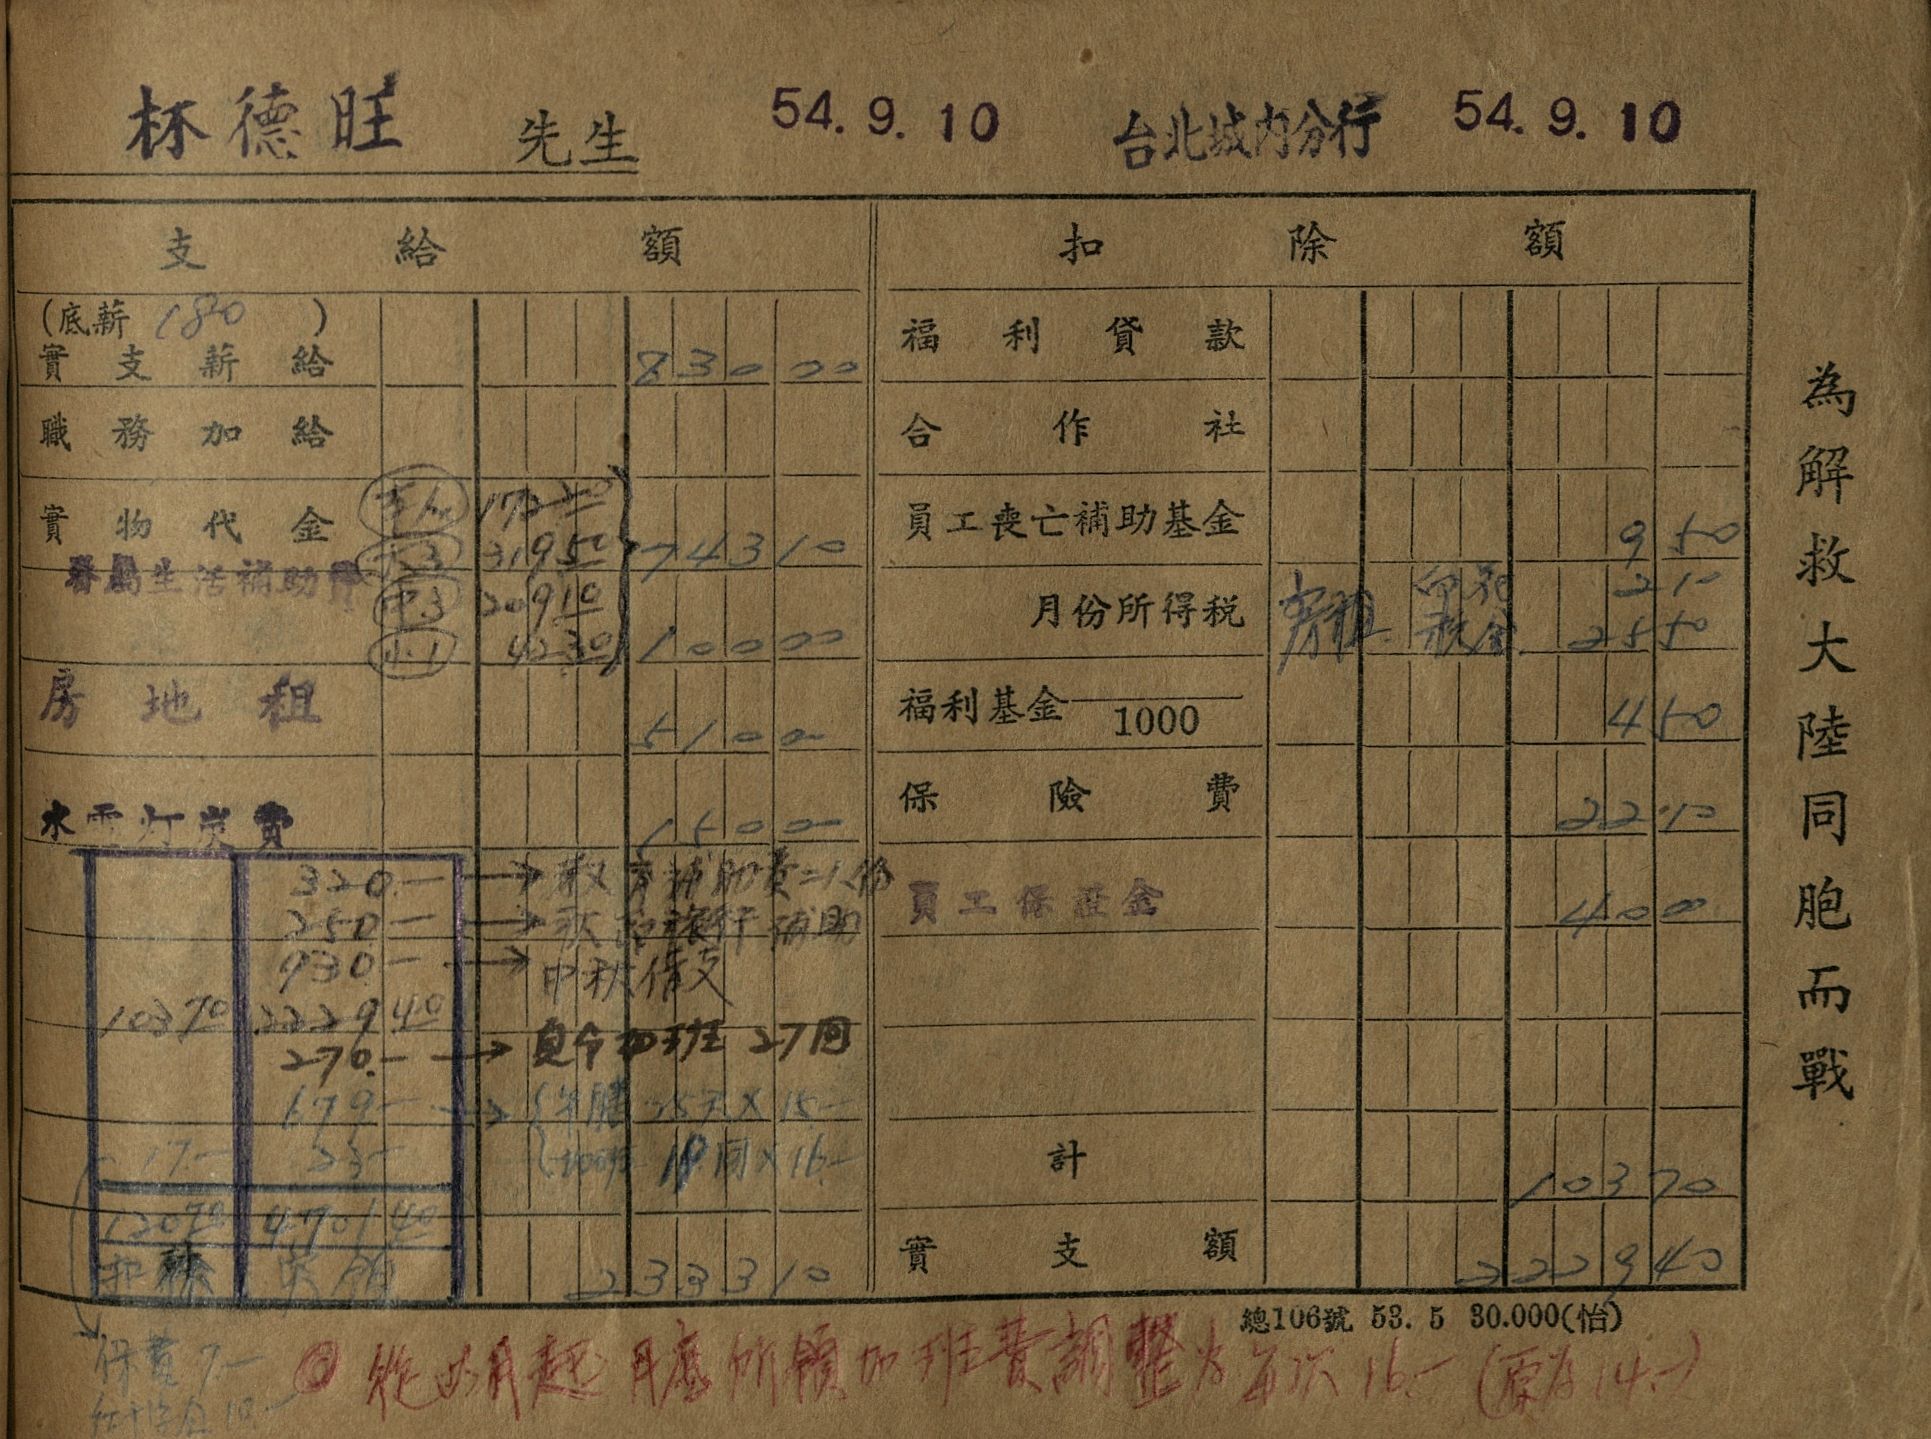 林德旺 先生 54.9.10 台北城內分行 54.9.10
支給額 扣除額
(底薪 180 )
實支薪給 830 00
福利貸款
職務加給
合作社
實物代金 172 20
大3 319 50 743 10
員工喪亡補助基金 9 50
眷屬生活補助費
中3 209 10
小1 42 30 100 00
月份所得稅 房租 印花 2 10
稅金 25 50
房地租 510 00
福利基金 1000 4 50
水電灯炭費 150 00
保險費 22 10
320.— → 教育補助費
250.— → 秋節旅行補助
員工保證金 40 00
930.— → 中秋借支
103 70 2229 40
270.— → 加班 27回
679.— → 25天×15.—
17.— 23.— 18回×16.—
計 103 70
120 70 4701 40
扣除 實領 2333 10
實支額 2229 40
總106號 53.5 30.000(怡)
保費 7.—
10.—
從此月起 所領加班費調整為每次16.— (原為14.—)
為解救大陸同胞而戰